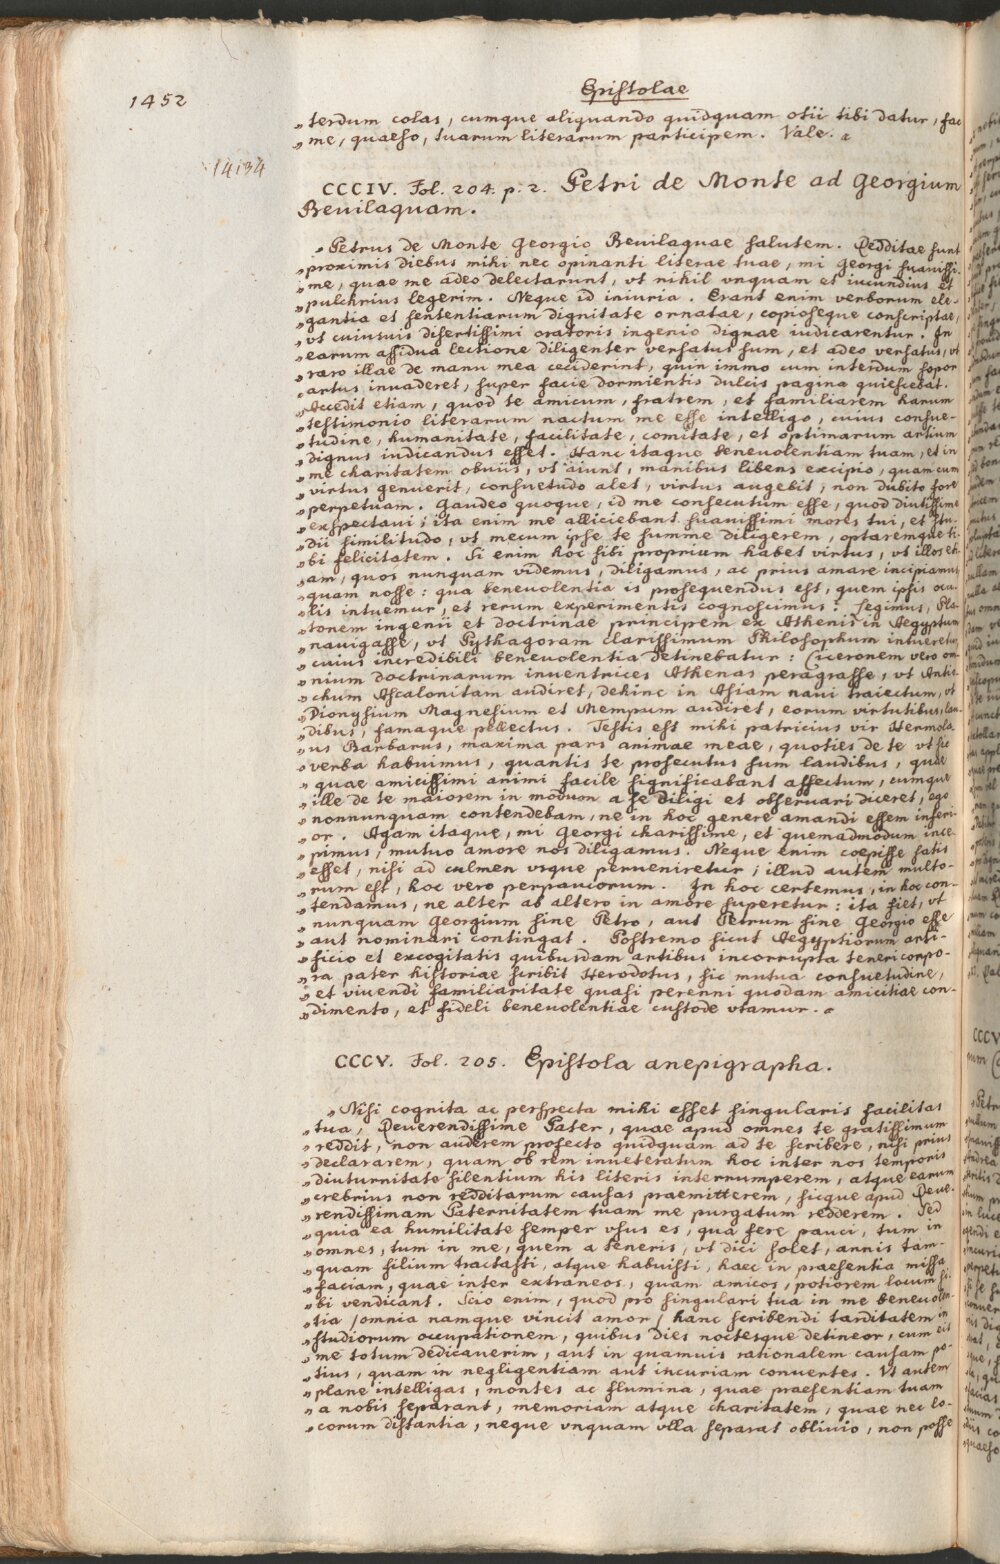 1452
Epistolae
„terdum colas, cumque aliquando quidquam otii tibi datur, fac
„me, quaeso, tuarum literarum participem. Vale.
14134
CCCIV. Fol. 204. p. 2. Petri de Monte ad Georgium
Beuilaquam.
„Petrus de Monte Georgio Beuilaquae salutem. Redditae sunt
„proximis diebus mihi nec opinanti literae tuae, mi Georgi suauissi-
„me, quae me adeo delectarunt, vt nihil vnquam et iucundius et
„pulchrius legerim. Neque id iniuria. Erant enim verborum ele-
„gantia et sententiarum dignitate ornatae, copioseque conscriptae,
„vt cuiusuis disertissimi oratoris ingenio dignae iudicarentur. In
„earum assidua lectione diligenter versatus sum, et adeo versatus, vt
„raro illae de manu mea ceciderint, quin immo cum interdum sopor
„artus inuaderet, super facie dormientis dulcis pagina quiescebat.
„Accedit etiam, quod te amicum, fratrem, et familiarem harum
„testimonio literarum nactum me esse intelligo, cuius consue-
„tudine, humanitate, facilitate, comitate, et optimarum artium
„dignus iudicandus esset. Hanc itaque beneuolentiam tuam, et in
„me charitatem obuiis, vt aiunt, manibus libens excipio, quam cum
„virtus genuerit, consuetudo alet, virtus augebit, non dubito fore
„perpetuam. Gaudeo quoque, id me consecutum esse, quod diutissime
„exspectaui; ita enim me alliciebant suauissimi mores tui, et stu-
„dii similitudo, vt mecum ipse te summe diligerem, optaremque ti-
„bi felicitatem. Si enim hoc sibi proprium habet virtus, vt illos eti-
„am, quos nunquam vidimus, diligamus, ac prius amare incipiamus
„quam nosse: qua beneuolentia is prosequendus est, quem ipsis ocu-
„lis intuemur, et rerum experimentis cognoscimus? Legimus, Pla-
„tonem ingenii et doctrinae principem ex Athenis in Aegyptum
„nauigasse, vt Pythagoram clarissimum Philosophum intueretur,
„cuius incredibili beneuolentia detinebatur: Ciceronem vero om-
„nium doctrinarum inuentrices Athenas peragrasse, vt Antio-
„chum Ascalonitam audiret, dehinc in Asiam naui traiectum, vt
„Dionysium Magnesium et Menipum audiret, eorum virtutibus, lau-
„dibus, famaque pellectus. Testis est mihi patricius vir Hermola-
„us Barbarus, maxima pars animae meae, quoties de te vt sic
„verba habuimus, quantis te prosecutus sum laudibus, quae
„quae amicissimi animi facile significabant affectum, cumque
„ille de te maiorem in modum a se diligi et obseruari diceret, ego
„nonnunquam contendebam, ne in hoc genere amandi essem inferi-
„or. Agam itaque, mi Georgi charissime, et quemadmodum ince-
„pimus, mutuo amore nos diligamus. Neque enim coepisse satis
„esset, nisi ad culmen vsque perueniretur; illud autem multo-
„rum est, hoc vero perpaucorum. In hoc certemus, in hoc con-
„tendamus, ne alter ab altero in amore superetur: ita fiet, vt
„nunquam Georgium sine Petro, aut Petrum sine Georgio esse
„aut nominari contingat. Postremo sicut Aegyptiorum arti-
„ficio et excogitatis quibusdam artibus incorrupta teneri corpo-
„ra pater historiae scribit Herodotus, sic mutua consuetudine,
„et viuendi familiaritate quasi perenni quodam amicitiae con-
„dimento, et fideli beneuolentiae custode vtamur.
CCCV. Fol. 205. Epistola anepigrapha.
„Nisi cognita ac perspecta mihi esset singularis facilitas
„tua, Reuerendissime Pater, quae apud omnes te gratissimum
„reddit, non auderem profecto quidquam ad te scribere, nisi prius
„declararem, quam ob rem inueteratum hoc inter nos temporis
„diuturnitate silentium his literis interrumperem, atque earum
„crebrius non redditarum causas praemitterem, sicque apud Reue-
„rendissimam Paternitatem tuam me purgatum redderem. Sed
„quia ea humilitate semper vsus es, qua fere pauci, tum in
„omnes, tum in me, quem a teneris, vt dici solet, annis tam-
„quam filium tractasti, atque habuisti, haec in praesentia missa
„faciam, quae inter extraneos, quam amicos, potiorem locum si-
„bi vendicant. Scio enim, quod pro singulari tua in me beneuolen-
„tia /omnia namque vincit amor/ hanc scribendi tarditatem in
„studiorum occupationem, quibus dies noctesque detineor, cum eis
„me totum dedicauerim, aut in quamuis rationalem causam po-
„tius, quam in negligentiam aut incuriam conuertes. Vt autem
„plane intelligas, montes ac flumina, quae praesentiam tuam
„a nobis separant, memoriam atque charitatem, quae nec lo-
„corum distantia, neque vnquam vlla separat obliuio, non posse